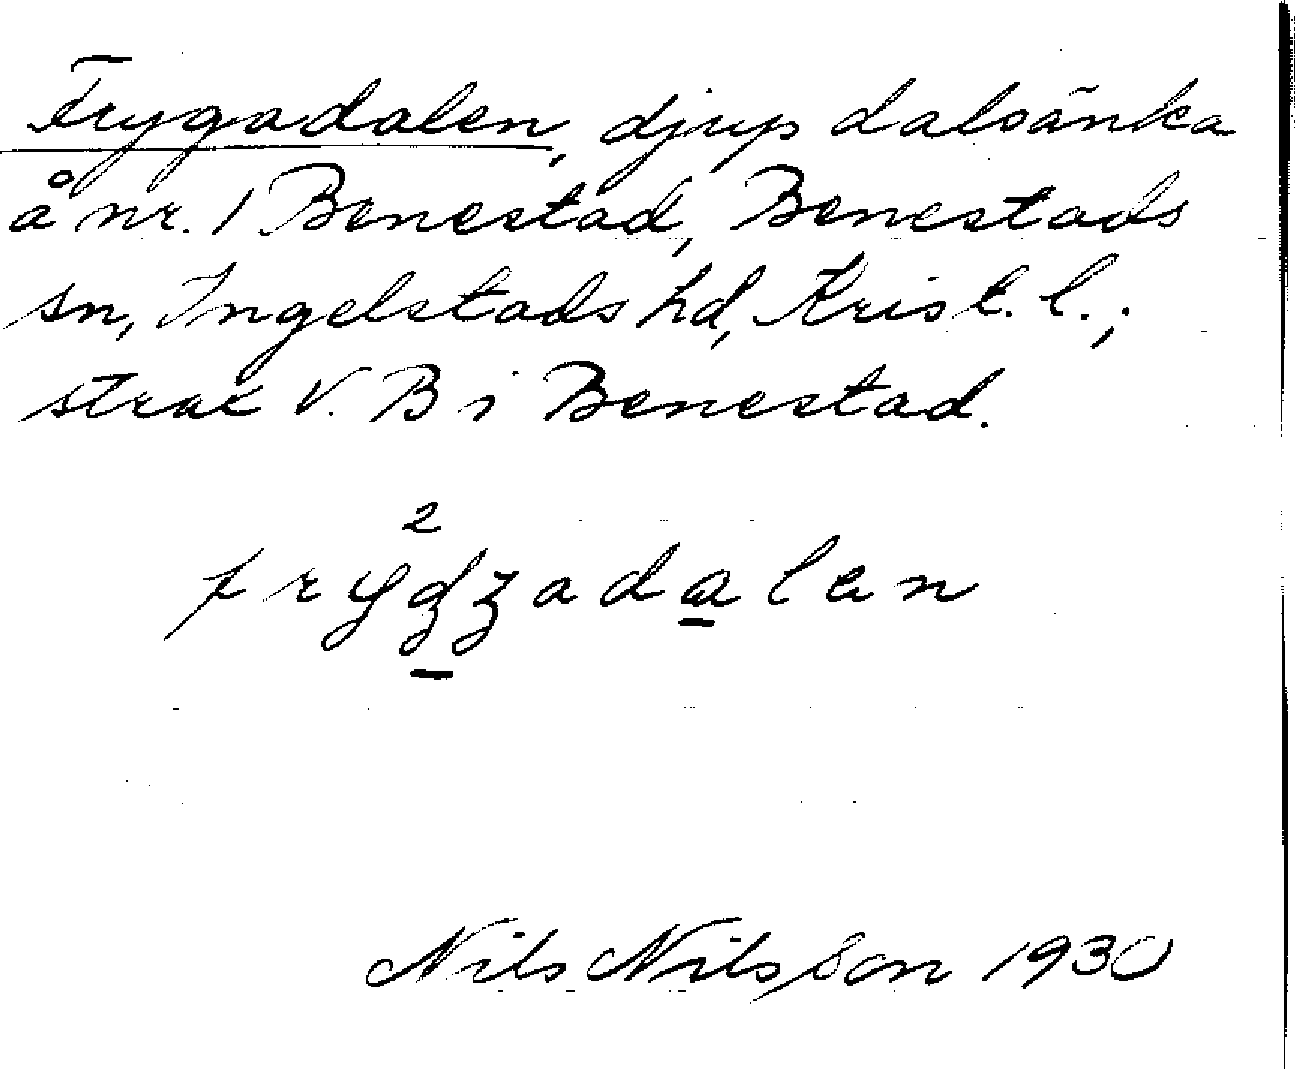 Frygadalen, djup dalsänka
å nr. 1 Benestad, Benestads
sn, Ingelstads hd, Krist. l.;
strax V. B i Benestad.
2
Nils Nilsson 1930